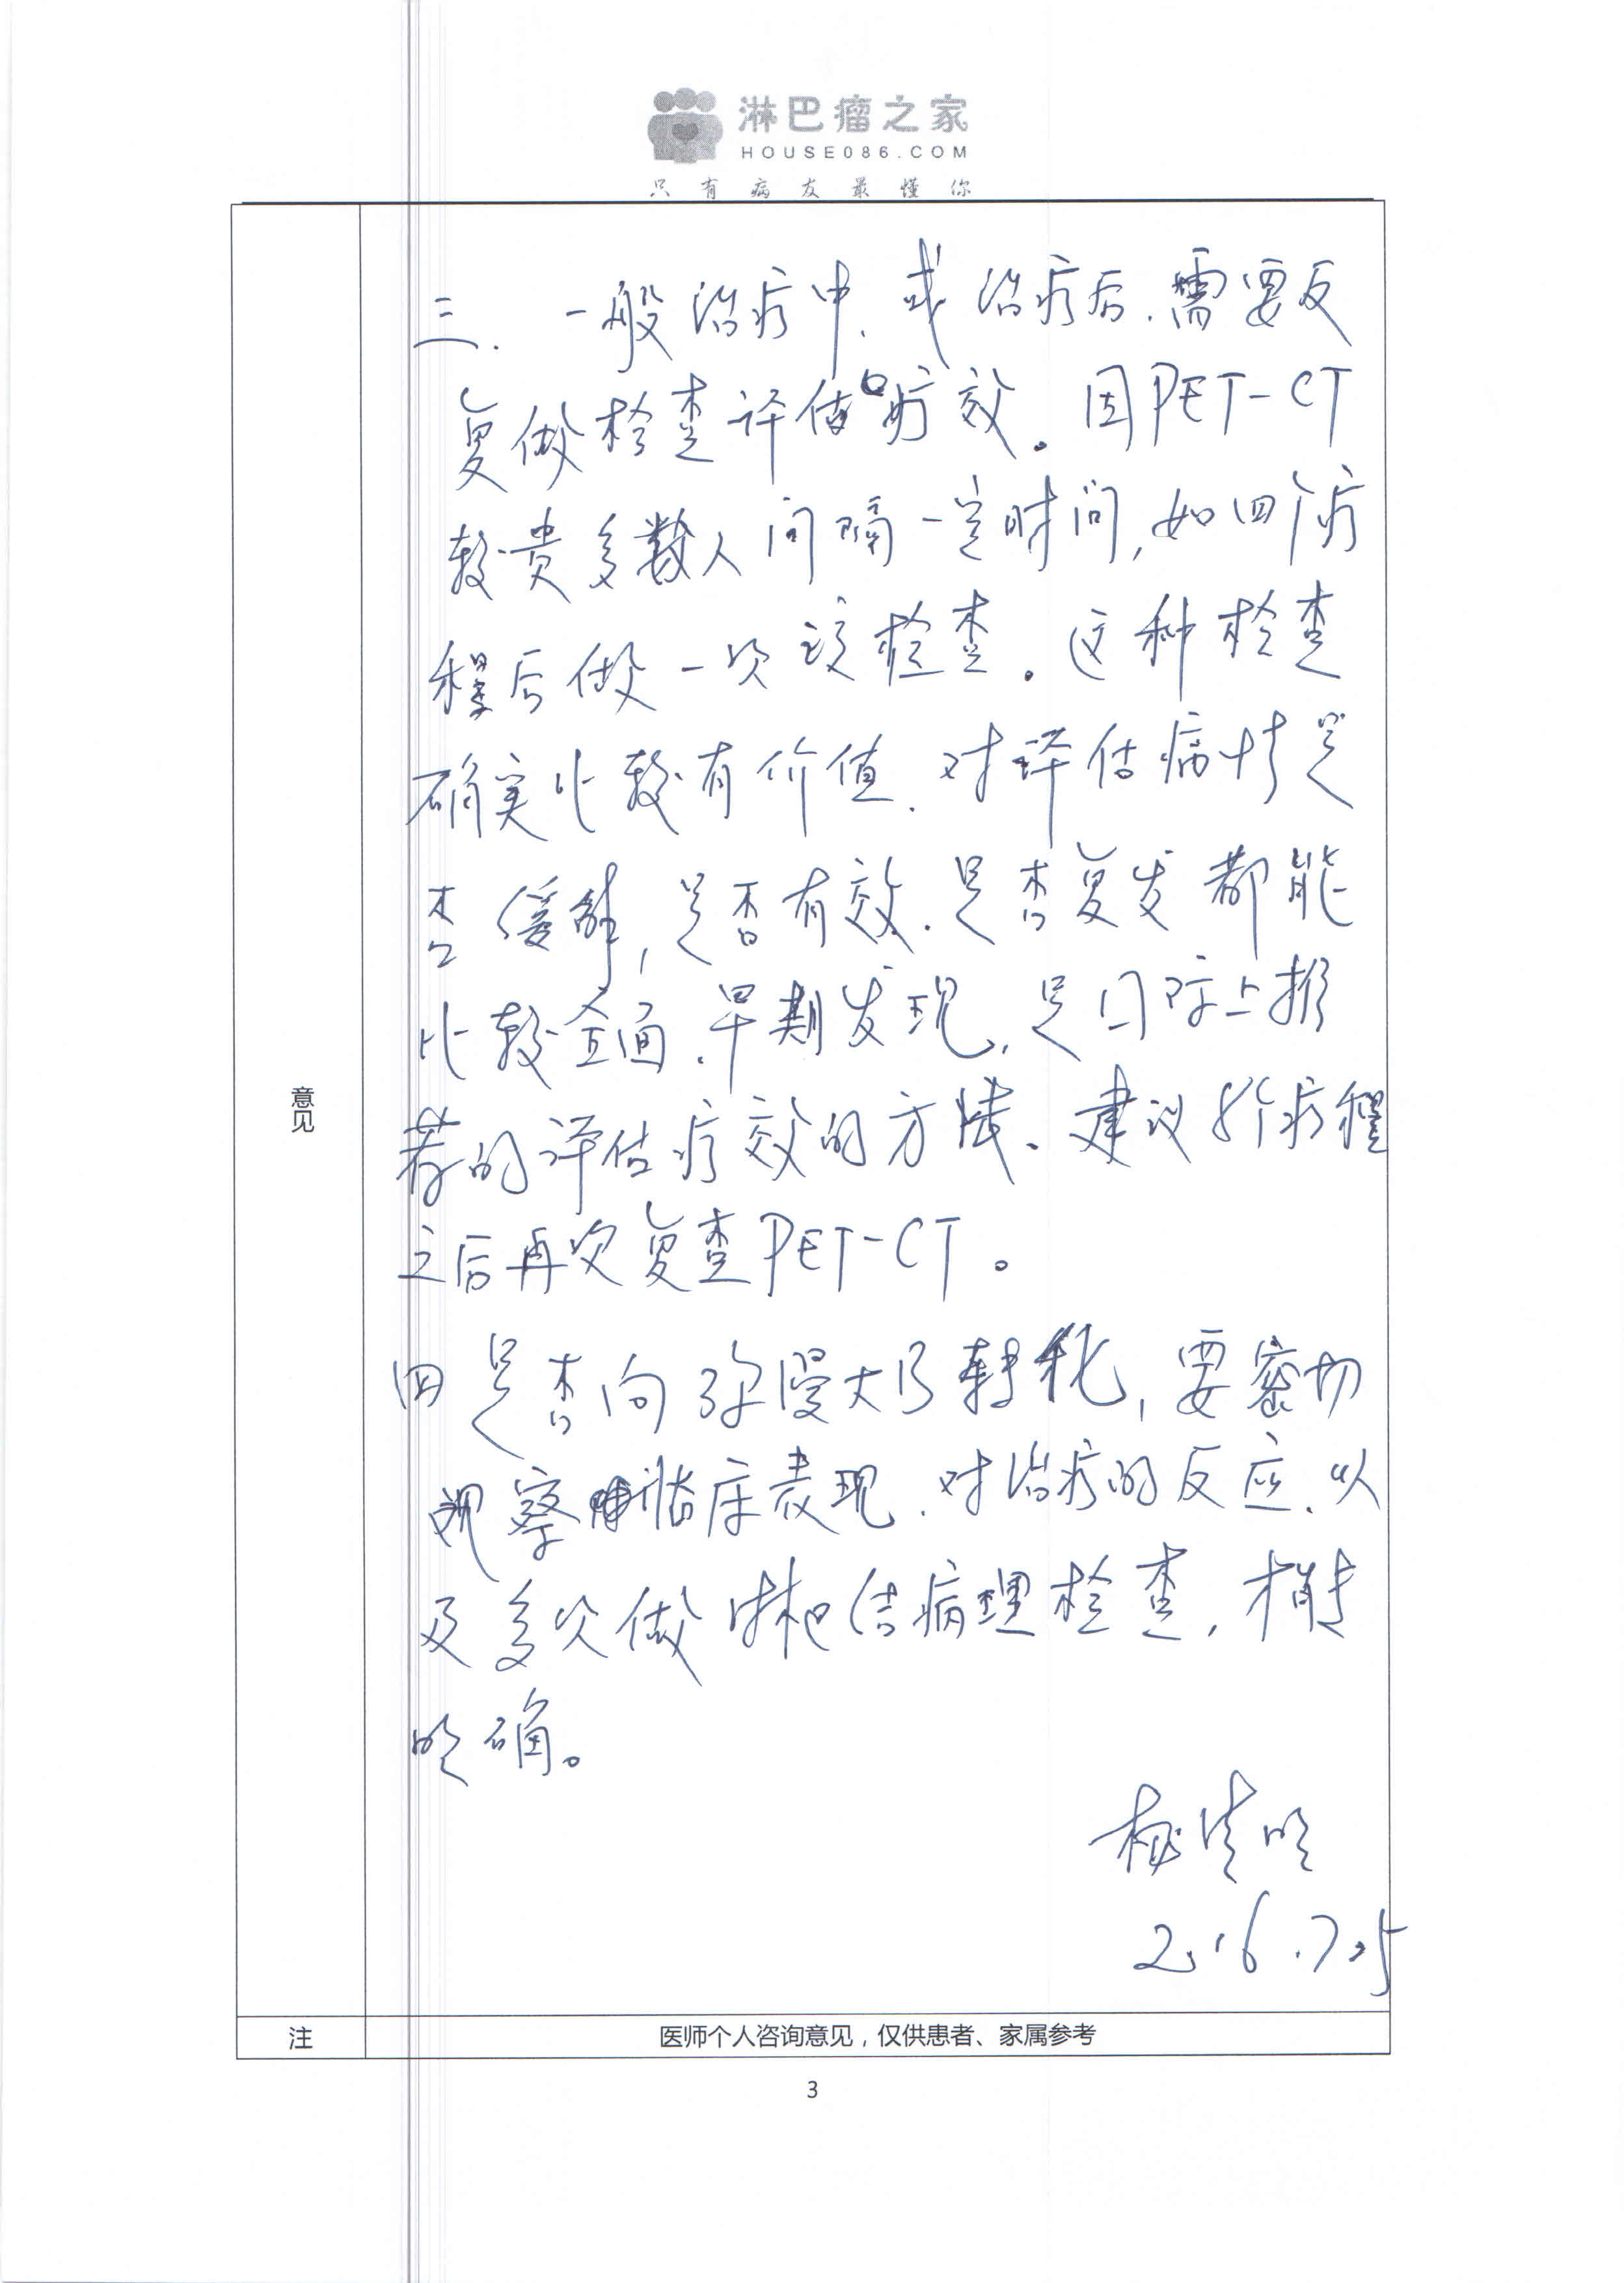 淋巴瘤之家
HOUSE086.COM
只有病友最懂你
三. 一般治疗中、或治疗后、需要反
复做检查评估疗效。因PET-CT
较贵多数人间隔一定时间,如四个疗
程后做一次该检查。这种检查
确实比较有价值、对评估病情是
否缓解,是否有效、是否复发都能
比较全面、早期发现,是国际上推
荐的评估疗效的方法、建议个疗程
之后再次复查PET-CT。
四 是否向弥漫大B转化,要密切
观察临床表现、对治疗的反应、以
及多次做淋巴结病理检查,才能
明确。
清明
2016.7.5
意见
注
医师个人咨询意见,仅供患者、家属参考
3